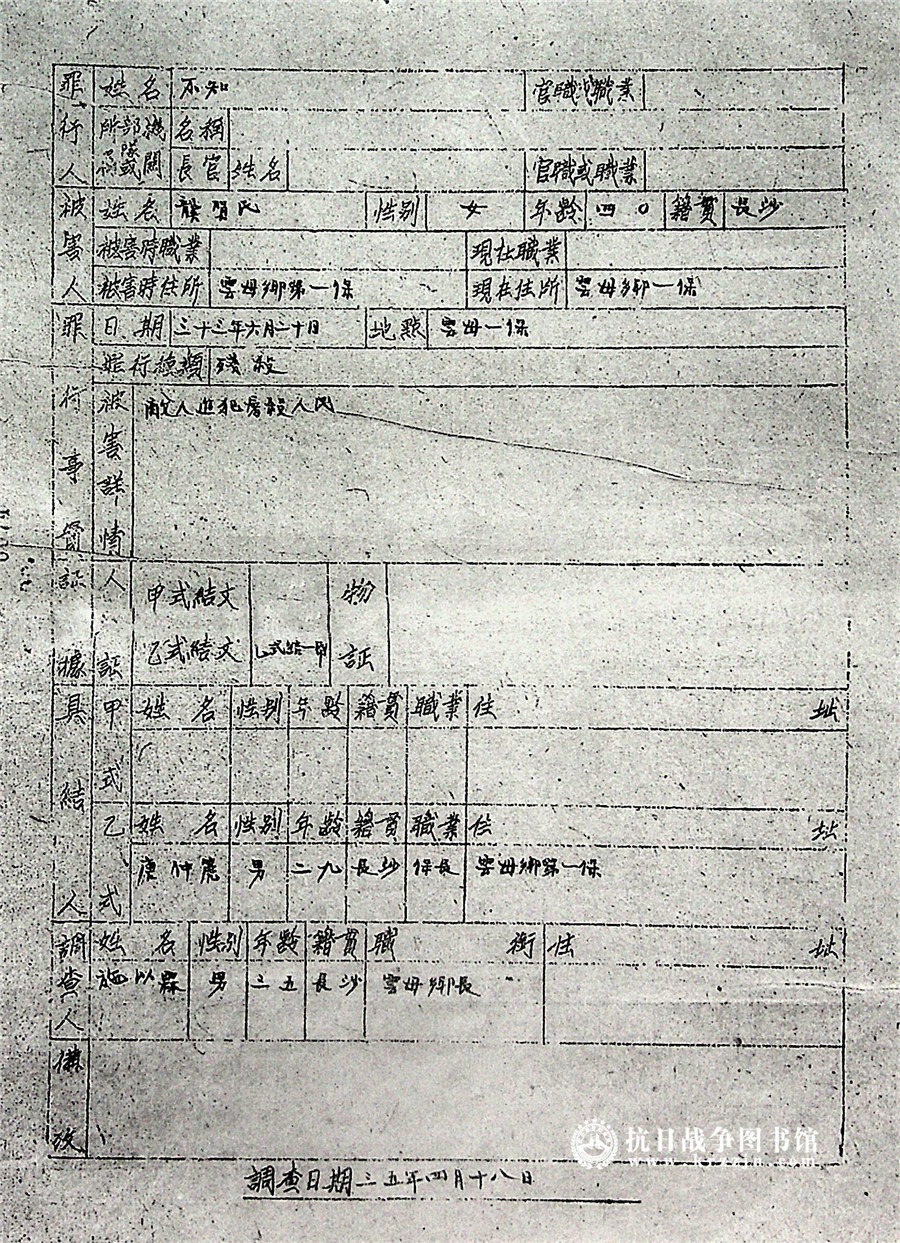 罪行人 姓名 不知 官職或職業
所部機 名稱
隊或關 長官 姓名 官職或職業
被害人 姓名 賀民 性别 女 年齡 四〇 籍貫 長沙
被害時職業 現在職業
被害時住所 雲母鄉第一保 現在住所 雲母鄉一保
罪行事實 日期 三十三年六月二十日 地點 雲母一保
罪行種類 殘殺
被害詳情 敵人進犯房殺人民
証據 人証 甲式結文 物証
乙式結文 乙式結一帋
具結人 甲式 姓名 性別 年齡 籍貫 職業 住址
乙式 姓名 性别 年齡 籍貫 職業 住址
唐仲篪 男 二九 長沙 保長 雲母鄉第一保
調查人 姓名 性別 年齡 籍貫 職銜 住址
施以霖 男 三五 長沙 雲母鄉長
備攷
調查日期三五年四月十八日
抗日战争图书馆